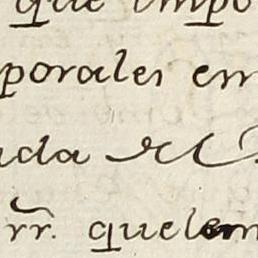 que impo
porales em
ada de
rr. quelem